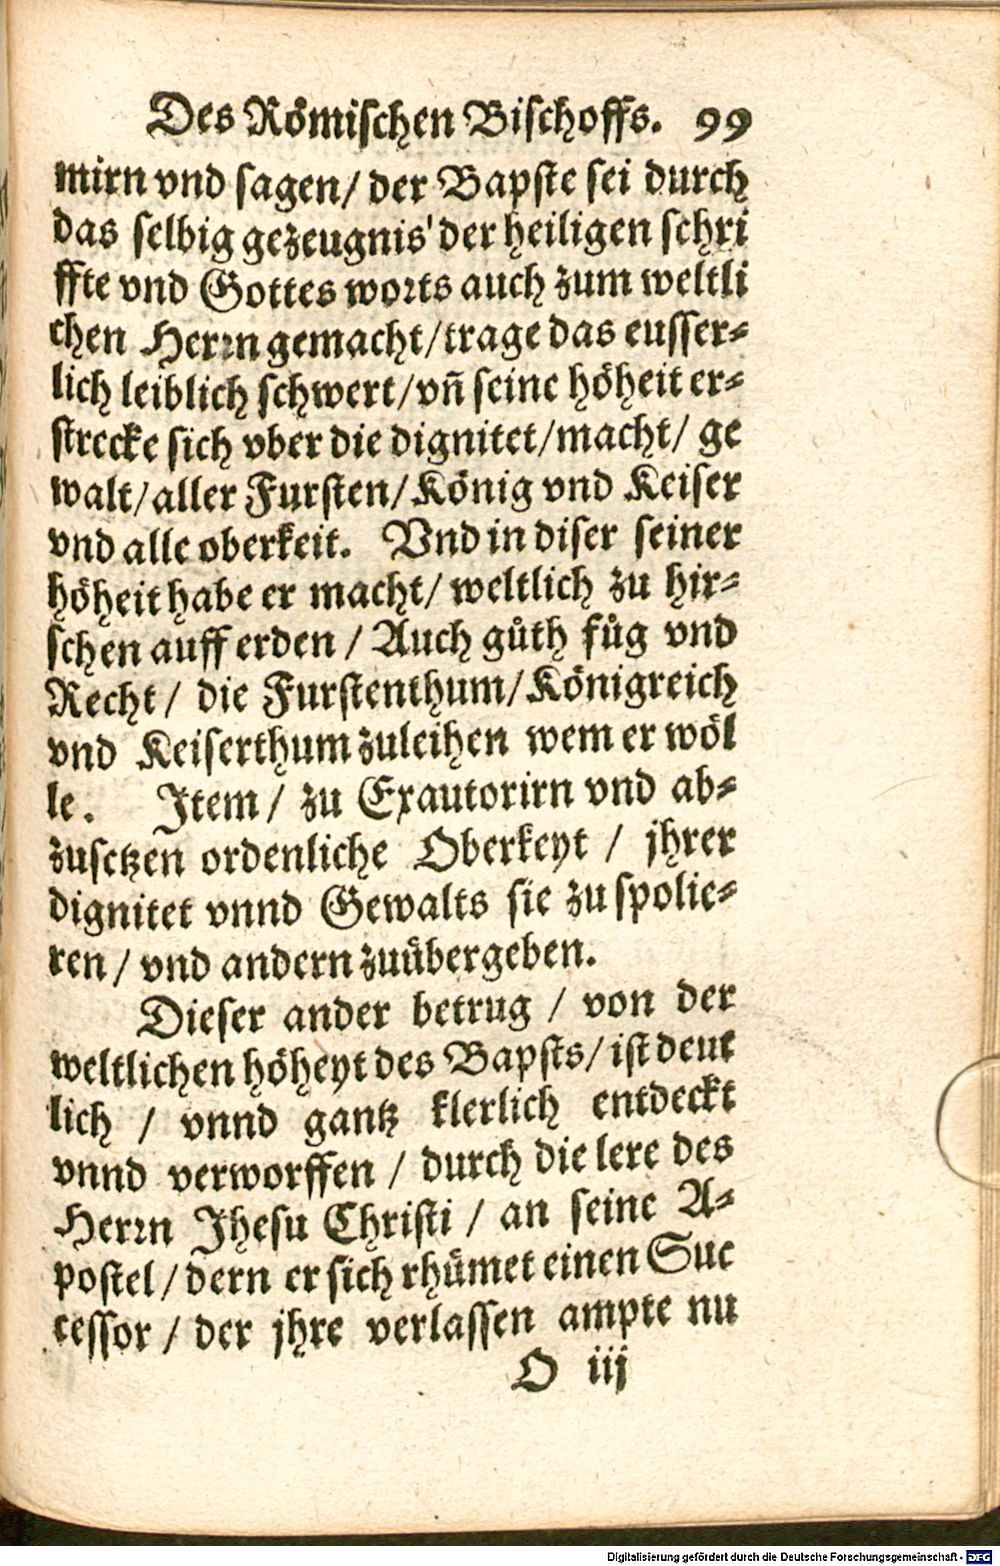 Des Römischen Bischoffs. 99
mirn vnd sagen/ der Bapste sei durch
das selbig gezeugnis' der heiligen schri
ffte vnd Gottes worts auch zum weltli
chen Herrn gemacht/trage das eusser-
lich leiblich schwert/vñ seine höheit er-
strecke sich vber die dignitet/macht/ ge
walt/aller Fursten/König vnd Keiser
vnd alle oberkeit. Vnd in diser seiner
höheit habe er macht/ weltlich zu hir-
schen auff erden / Auch gůth fůg vnd
Recht/ die Furstenthum/Königreich
vnd Keiserthum zuleihen wem er wöl
le. Item/ zu Exautorirn vnd ab-
zusetzen ordenliche Oberkeyt / jhrer
dignitet vnnd Gewalts sie zu spolie-
ren / vnd andern zuübergeben.
Dieser ander betrug / von der
weltlichen höheyt des Bapsts/ ist deut
lich / vnnd gantz klerlich entdeckt
vnnd verworffen / durch die lere des
Herrn Jhesu Christi / an seine A-
postel/dern er sich rhümet einen Suc
cessor / der jhre verlassen ampte nu
O iij
Digitalisierung gefördert durch die Deutsche Forschungsgemeinschaft - DFG